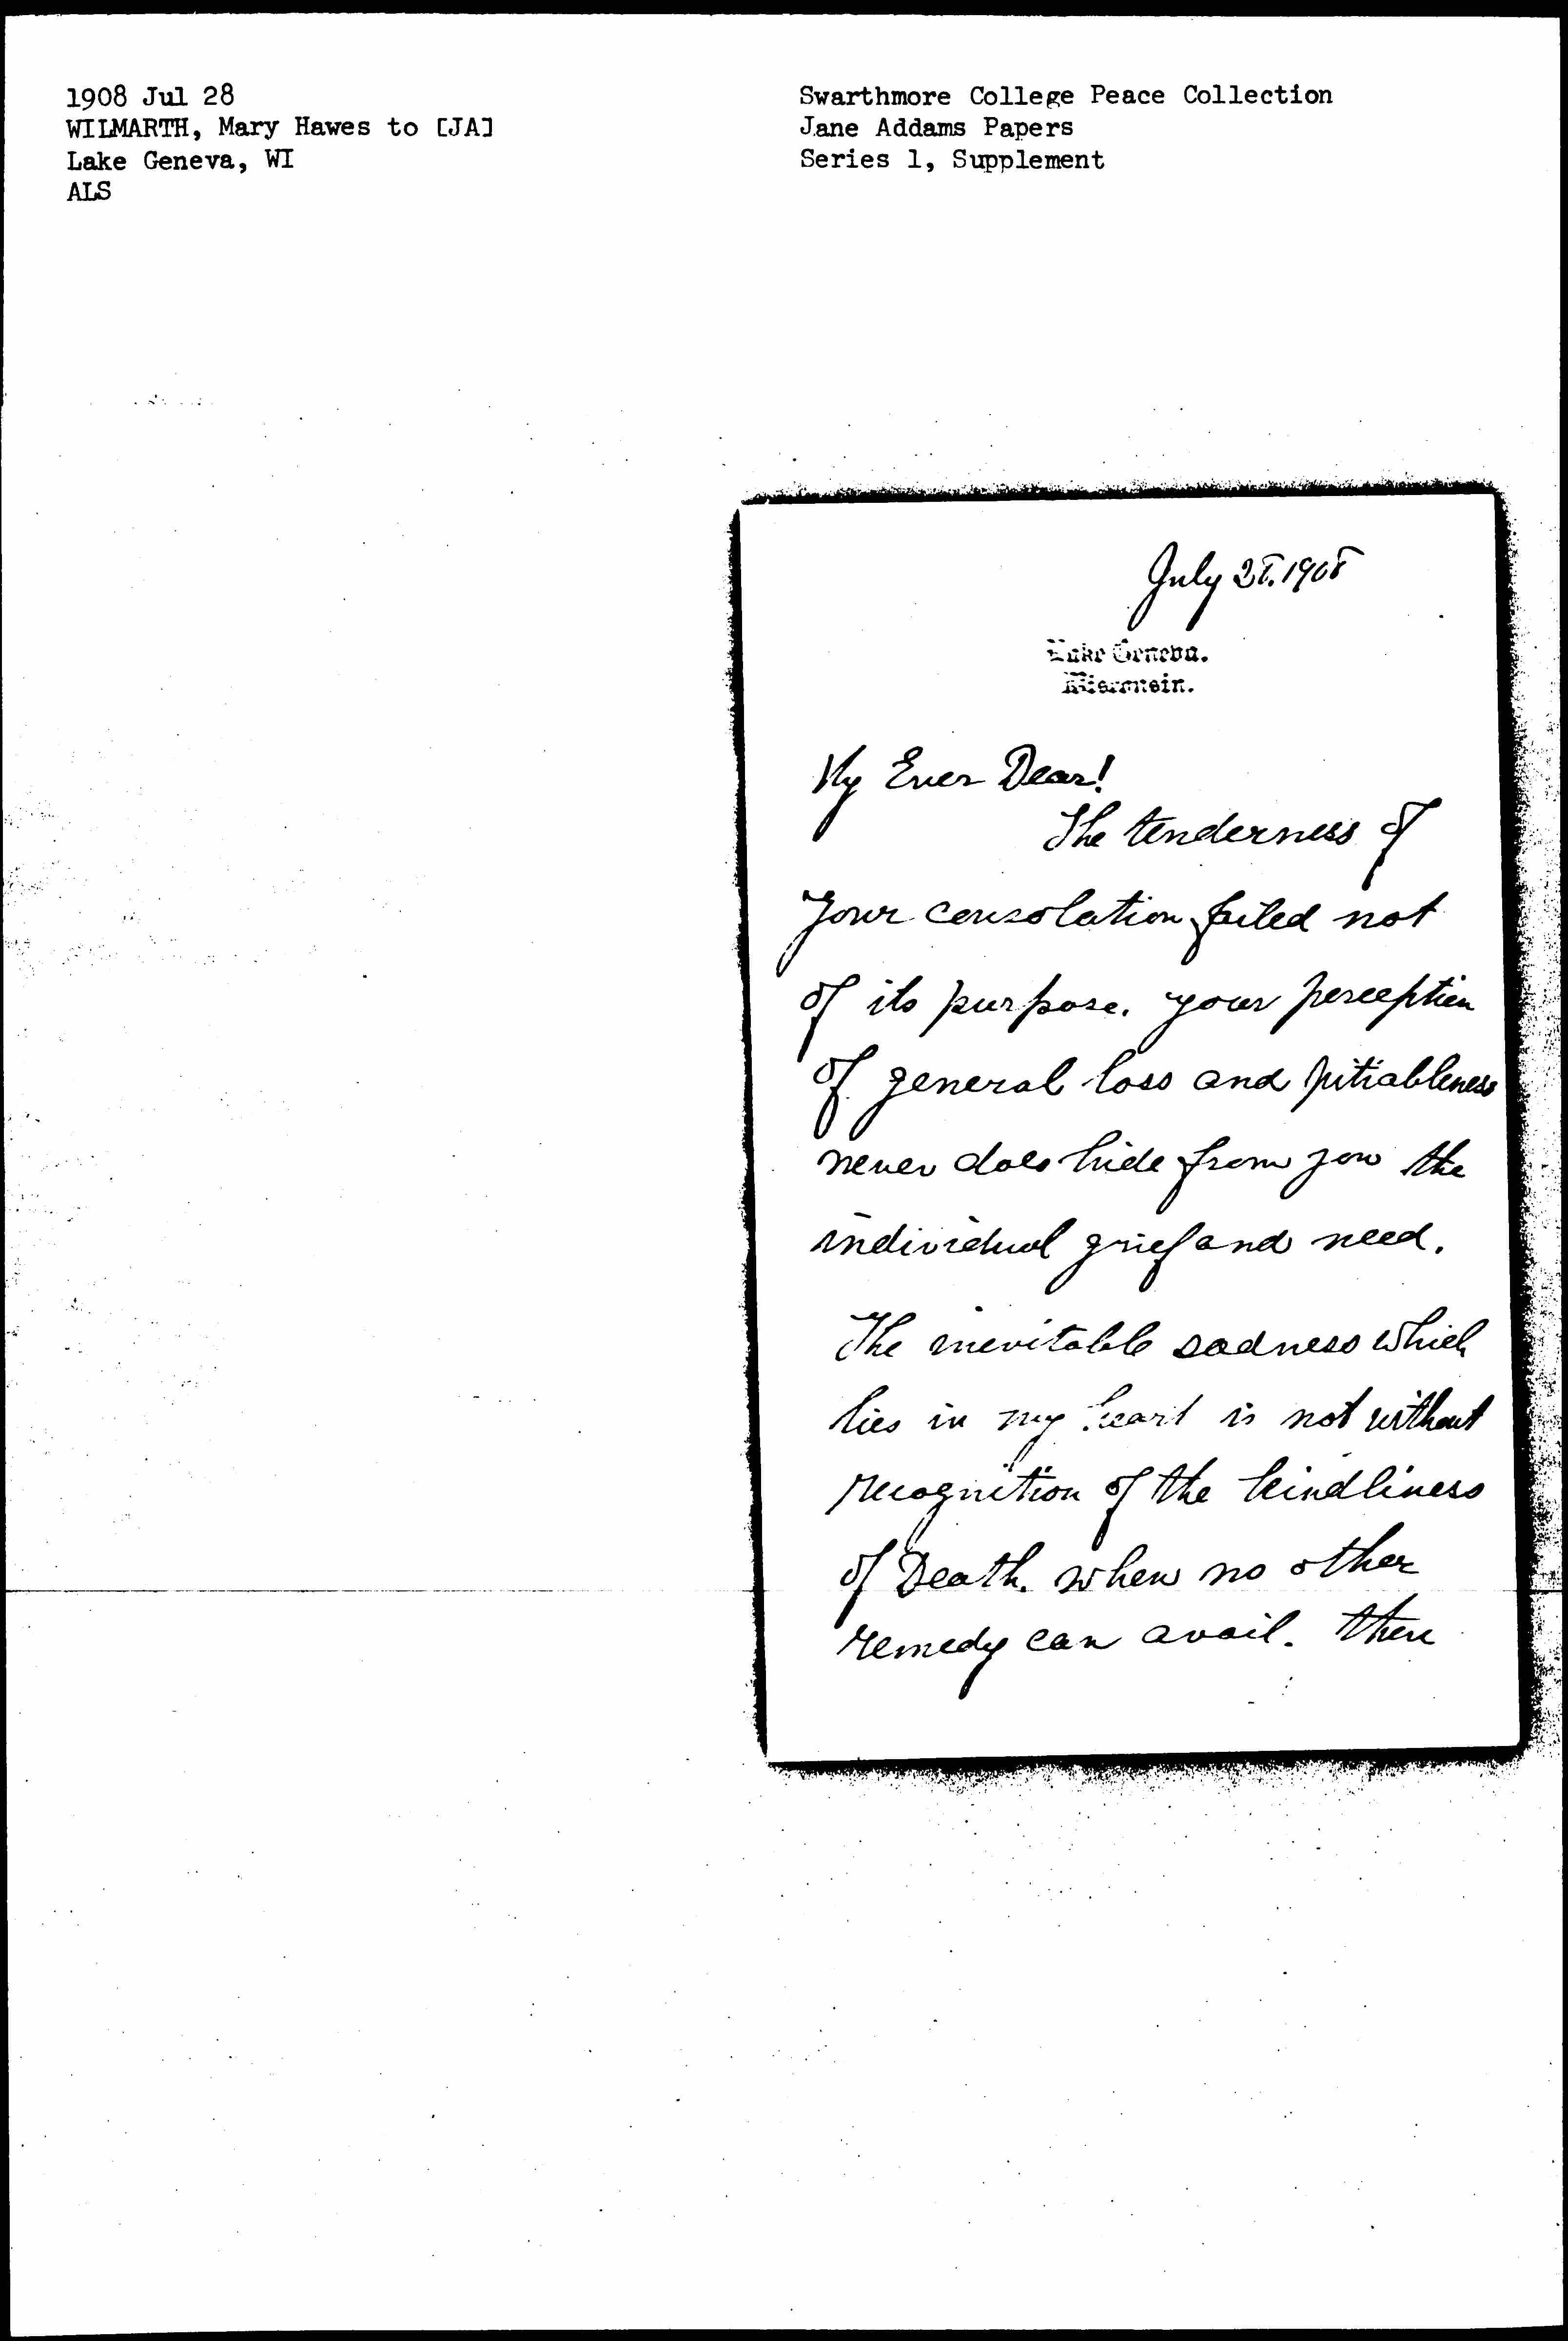 1908 Jul 28
WILMARTH, Mary Hawes to [JA]
Lake Geneva, WI
ALS
Swarthmore College Peace Collection
Jane Addams Papers
Series 1, Supplement
July 28. 1908
Lake Geneva.
Wisconsin.
My Ever Dear!
The tenderness of
your consolation failed not
of its purpose. your perception
of general loss and pitiableness
never does hide from you the
individual grief and need.
The inevitable sadness which
lies in my heart is not without
recognition of the kindliness
of Death. when no other
remedy can avail. there